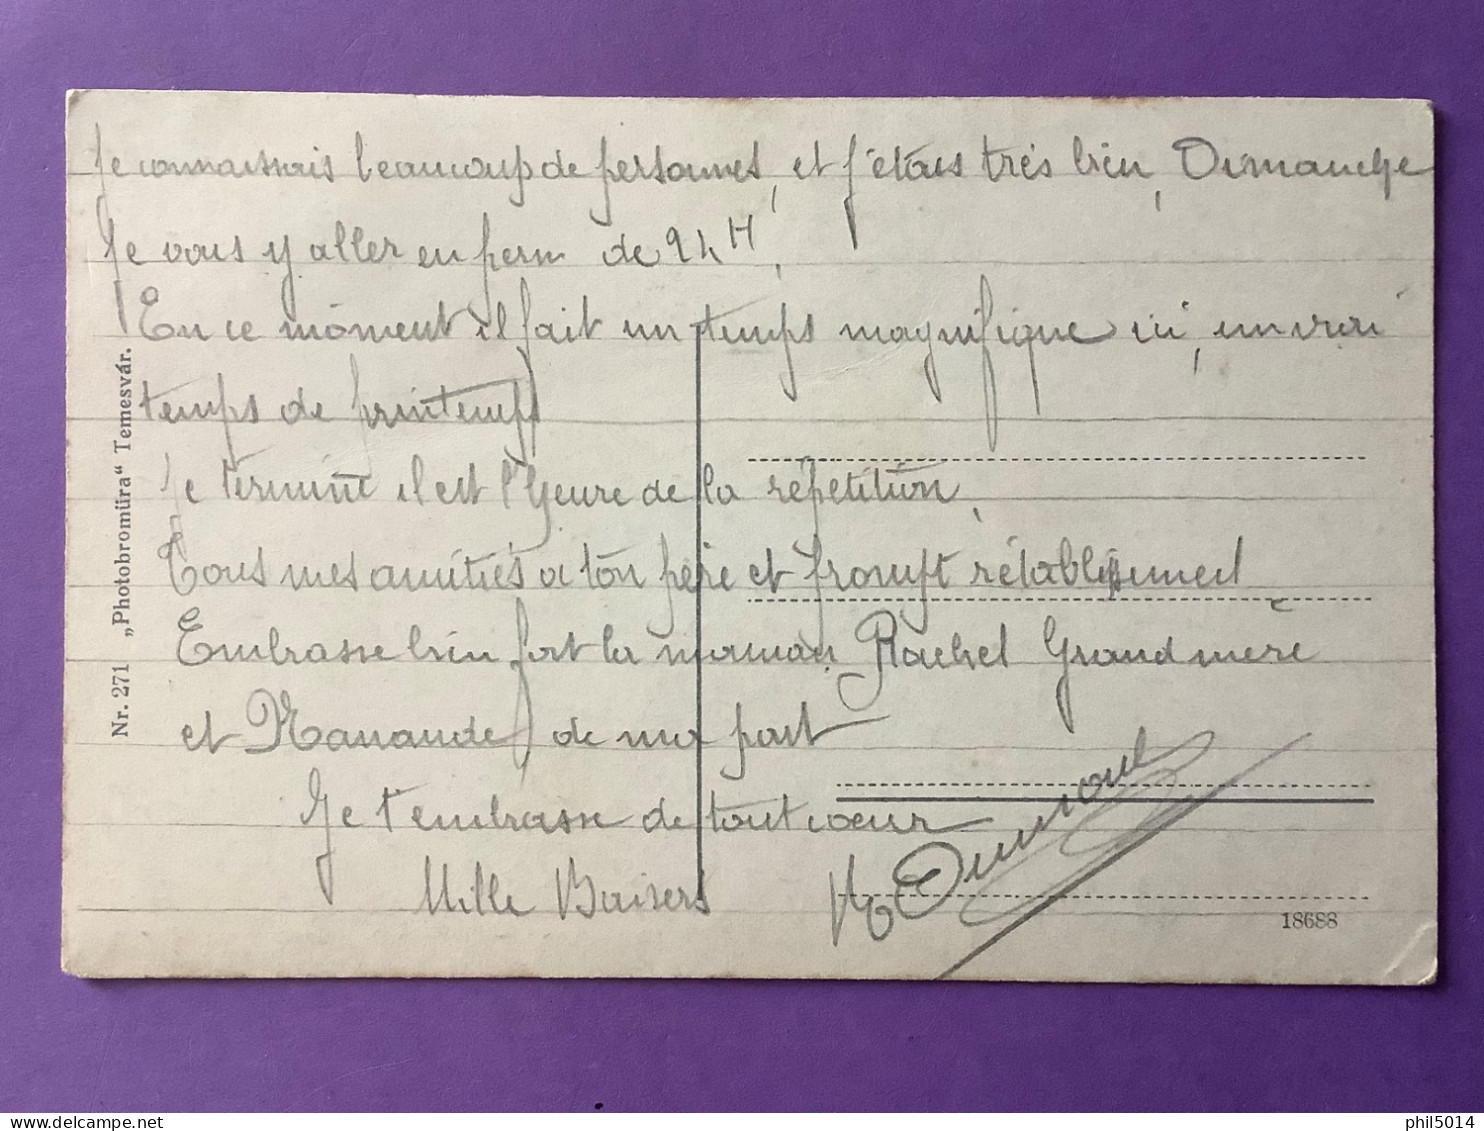 Je connaissais beaucoup de personnes, et j'étais très bien, Dimanche
Je vous y aller en perm de 24H,
En ce moment il fait un temps magnifique ici, un vrai
temps de printemps
Je termine il est l'heure de la répétition,
Tous mes amitiés a ton père et prompt rétablissement
Embrasse bien fort la maman Rachel Grand mère
et de ma part
Je t'embrasse de tout coeur
Mille Baisers
Nr. 271 „Photobromüra“ Temesvár.
18688
phil5014
delcampe.net